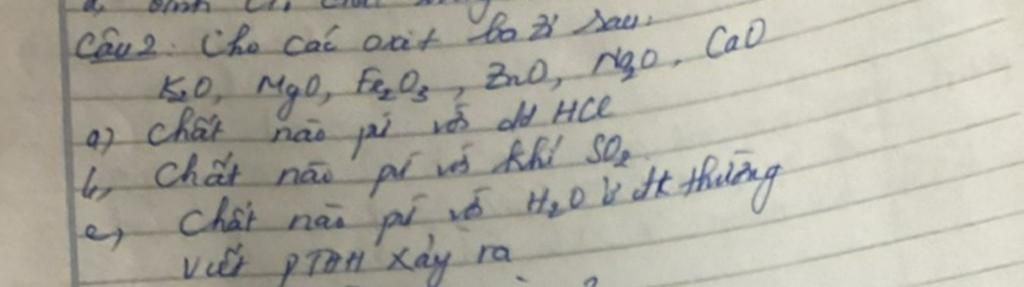 Câu 2. Cho các oxit bazơ sau.
K₂O, MgO, Fe₂O₃, ZnO, Na₂O, CaO
a) Chất nào pí với dd HCl
b, Chất nào pí với khí SO₂
c, Chất nào pí với H₂O ở đk thường
Viết PTHH xảy ra